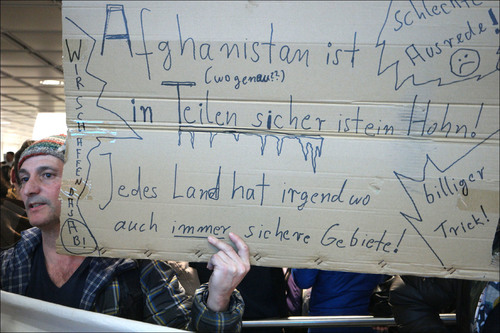 Afghanistan ist
(wo genau!?)
in Teilen sicher ist ein Hohn!
Jedes Land hat irgendwo
auch immer sichere Gebiete!
Schlechte
Ausrede!
billiger
Trick!
WIR SCHAFFEN
DAS AB!